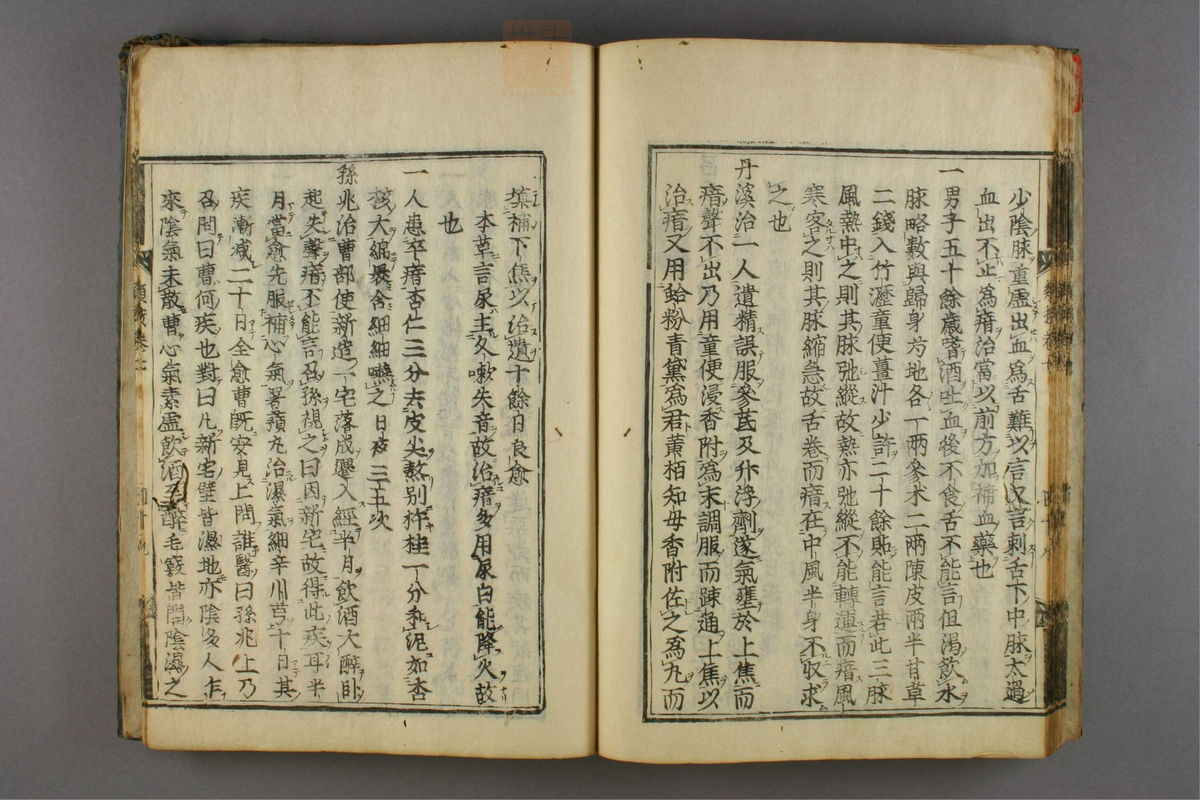 少陰脉重虛出血爲舌難以言又言刺舌下中脉太過
血出不止爲瘖治當以前方加補血藥也
一男子五十餘歲嗜酒吐血後不食舌不能言但渴飲水
脉略數與歸身芍地各一兩參朮二兩陳皮兩半甘草
二錢入竹瀝童便薑汁少許二十餘貼能言若此三脉
風熱中之則其脉弛縱故熱亦弛縱不能轉運而瘖風
寒客之則其脉縮急故舌卷而瘖在中風半身不收求
之也
丹溪治一人遺精誤服參芪及升浮劑遂氣壅於上焦而
瘖聲不出乃用童便浸香附爲末調服而踈通上焦以
治瘖又用蛤粉青黛爲君黃栢知母香附佐之爲丸而
塡補下焦以治遺十餘日良愈
本草言尿主久嗽失音故治瘖多用尿白能降火故
也
一人患卒瘖杏仁三分去皮尖熬別杵桂一分和泥如杏
核大綿裹含細細嚥之日夜三五次
孫兆治曹部使新造一宅落成遷入經半月飲酒大醉臥
起失聲瘖不能言召孫視之曰因新宅故得此疾耳半
月當愈先服補心氣薯蕷丸治濕氣細辛川芎十日其
疾漸减二十日全愈曹既安見上問誰醫曰孫兆上乃
召問曰曹何疾也對曰凡新宅壁皆濕地亦陰多人乍
來陰氣未散曹心氣素虛飲酒至醉毛竅皆開陰濕之